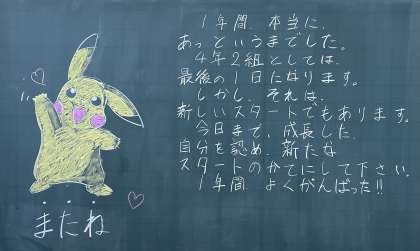 1年間、本当に、
あっというまでした。
4年2組としては、
最後の1日になります。
しかし、それは、
新しいスタートでもあります。
今日まで、成長した、
自分を認め、新たな
スタートのかてにして下さい。
1年間、よくがんばった!!
またね